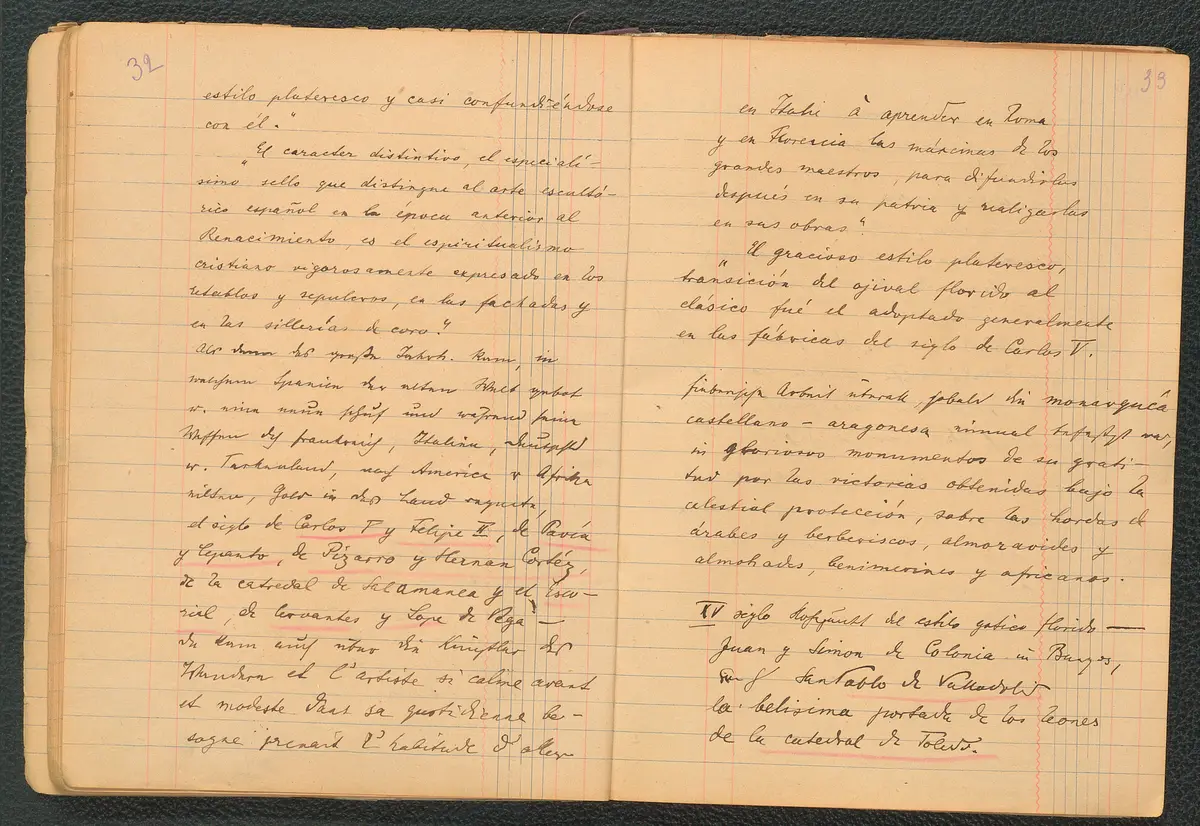 32
estilo plateresco y casi confundiéndose
con él."
"El caracter distintivo, el especialí-
simo sello que distingue al arte escultó-
rico español en la época anterior al
Renacimiento, es el espiritualismo
cristiano vigorosamente expresado en los
retablos y sepulcros, en las fachadas y
en las sillerías de coro."
Als dann das große Jahrh. kam, in
welchem Spanien der alten Welt gebot
u. eine neue schuf und während seine
Waffen durch Frankreich, Italien,
u. nach America u Afrika
eilten, Gold in das Land regnete,
el siglo de Carlos V y Felipe II, de Pavía
y Lepanto, de Pizarro y Hernan Cortéz,
de la catredal de Salamanca y el Esco-
rial, de Cervantes y Lope de Vega —
da kam auch über die Künstler das
Wandern et l'artiste si calme avant
et modeste dans sa quotidienne be-
sogne prenait l'habitude d'aller
33
en Italie à aprender en Roma
y en Florencia las máximas de los
grandes maestros, para difundirlas
después en su patria y realizarlas
en sus obras".
"El gracioso estilo plateresco,
transición del ojival florido al
clásico fué el adoptado generalmente
en las fábricas del siglo de Carlos V.
Fieberische Arbeit überall, sobald die monarquía
castellano – aragonesa einmal befestigt war,
in gloriosos monumentos de su grati-
tud por las victorias obtenidas bajo la
celestial protección, sobre las hordas de
árabes y berberiscos, almoravides y
almohades, benimerines y africanos.
XV siglo del estilo gotico florido —
Juan y Simon de Colonia in Burgos,
San Pablo de Valladolid
la belisima portada de los leones
de la catedral de Toledo.